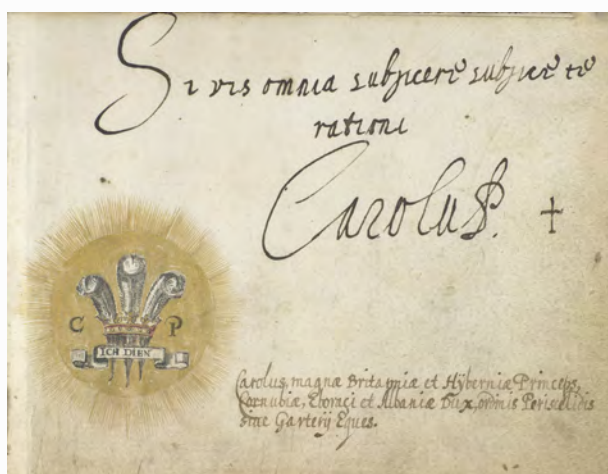 Si vis omnia subjicere subjice te
rationi
Carolus P.
C P
ICH DIEN
Carolus, magnæ Britanniæ et Hÿberniæ Princeps,
Cornubiæ, Eboraci et Albaniæ Dux, ordinis Periscelidis
sine Garterij Eques.